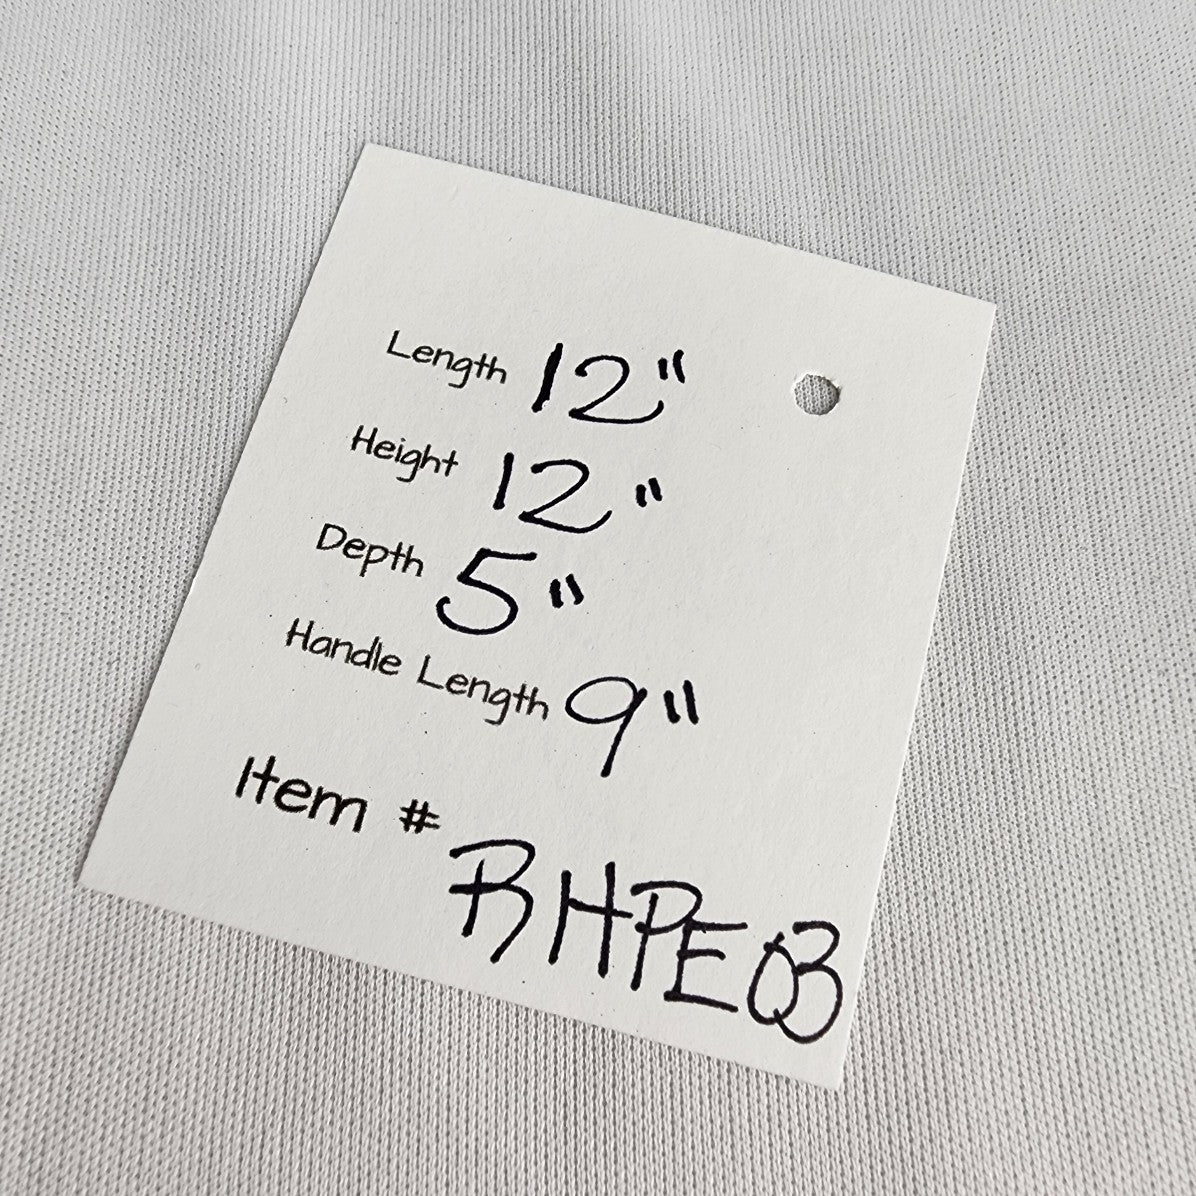 Length 12"
Height 12"
Depth 5"
Handle Length 9"
Item #
RHPE03